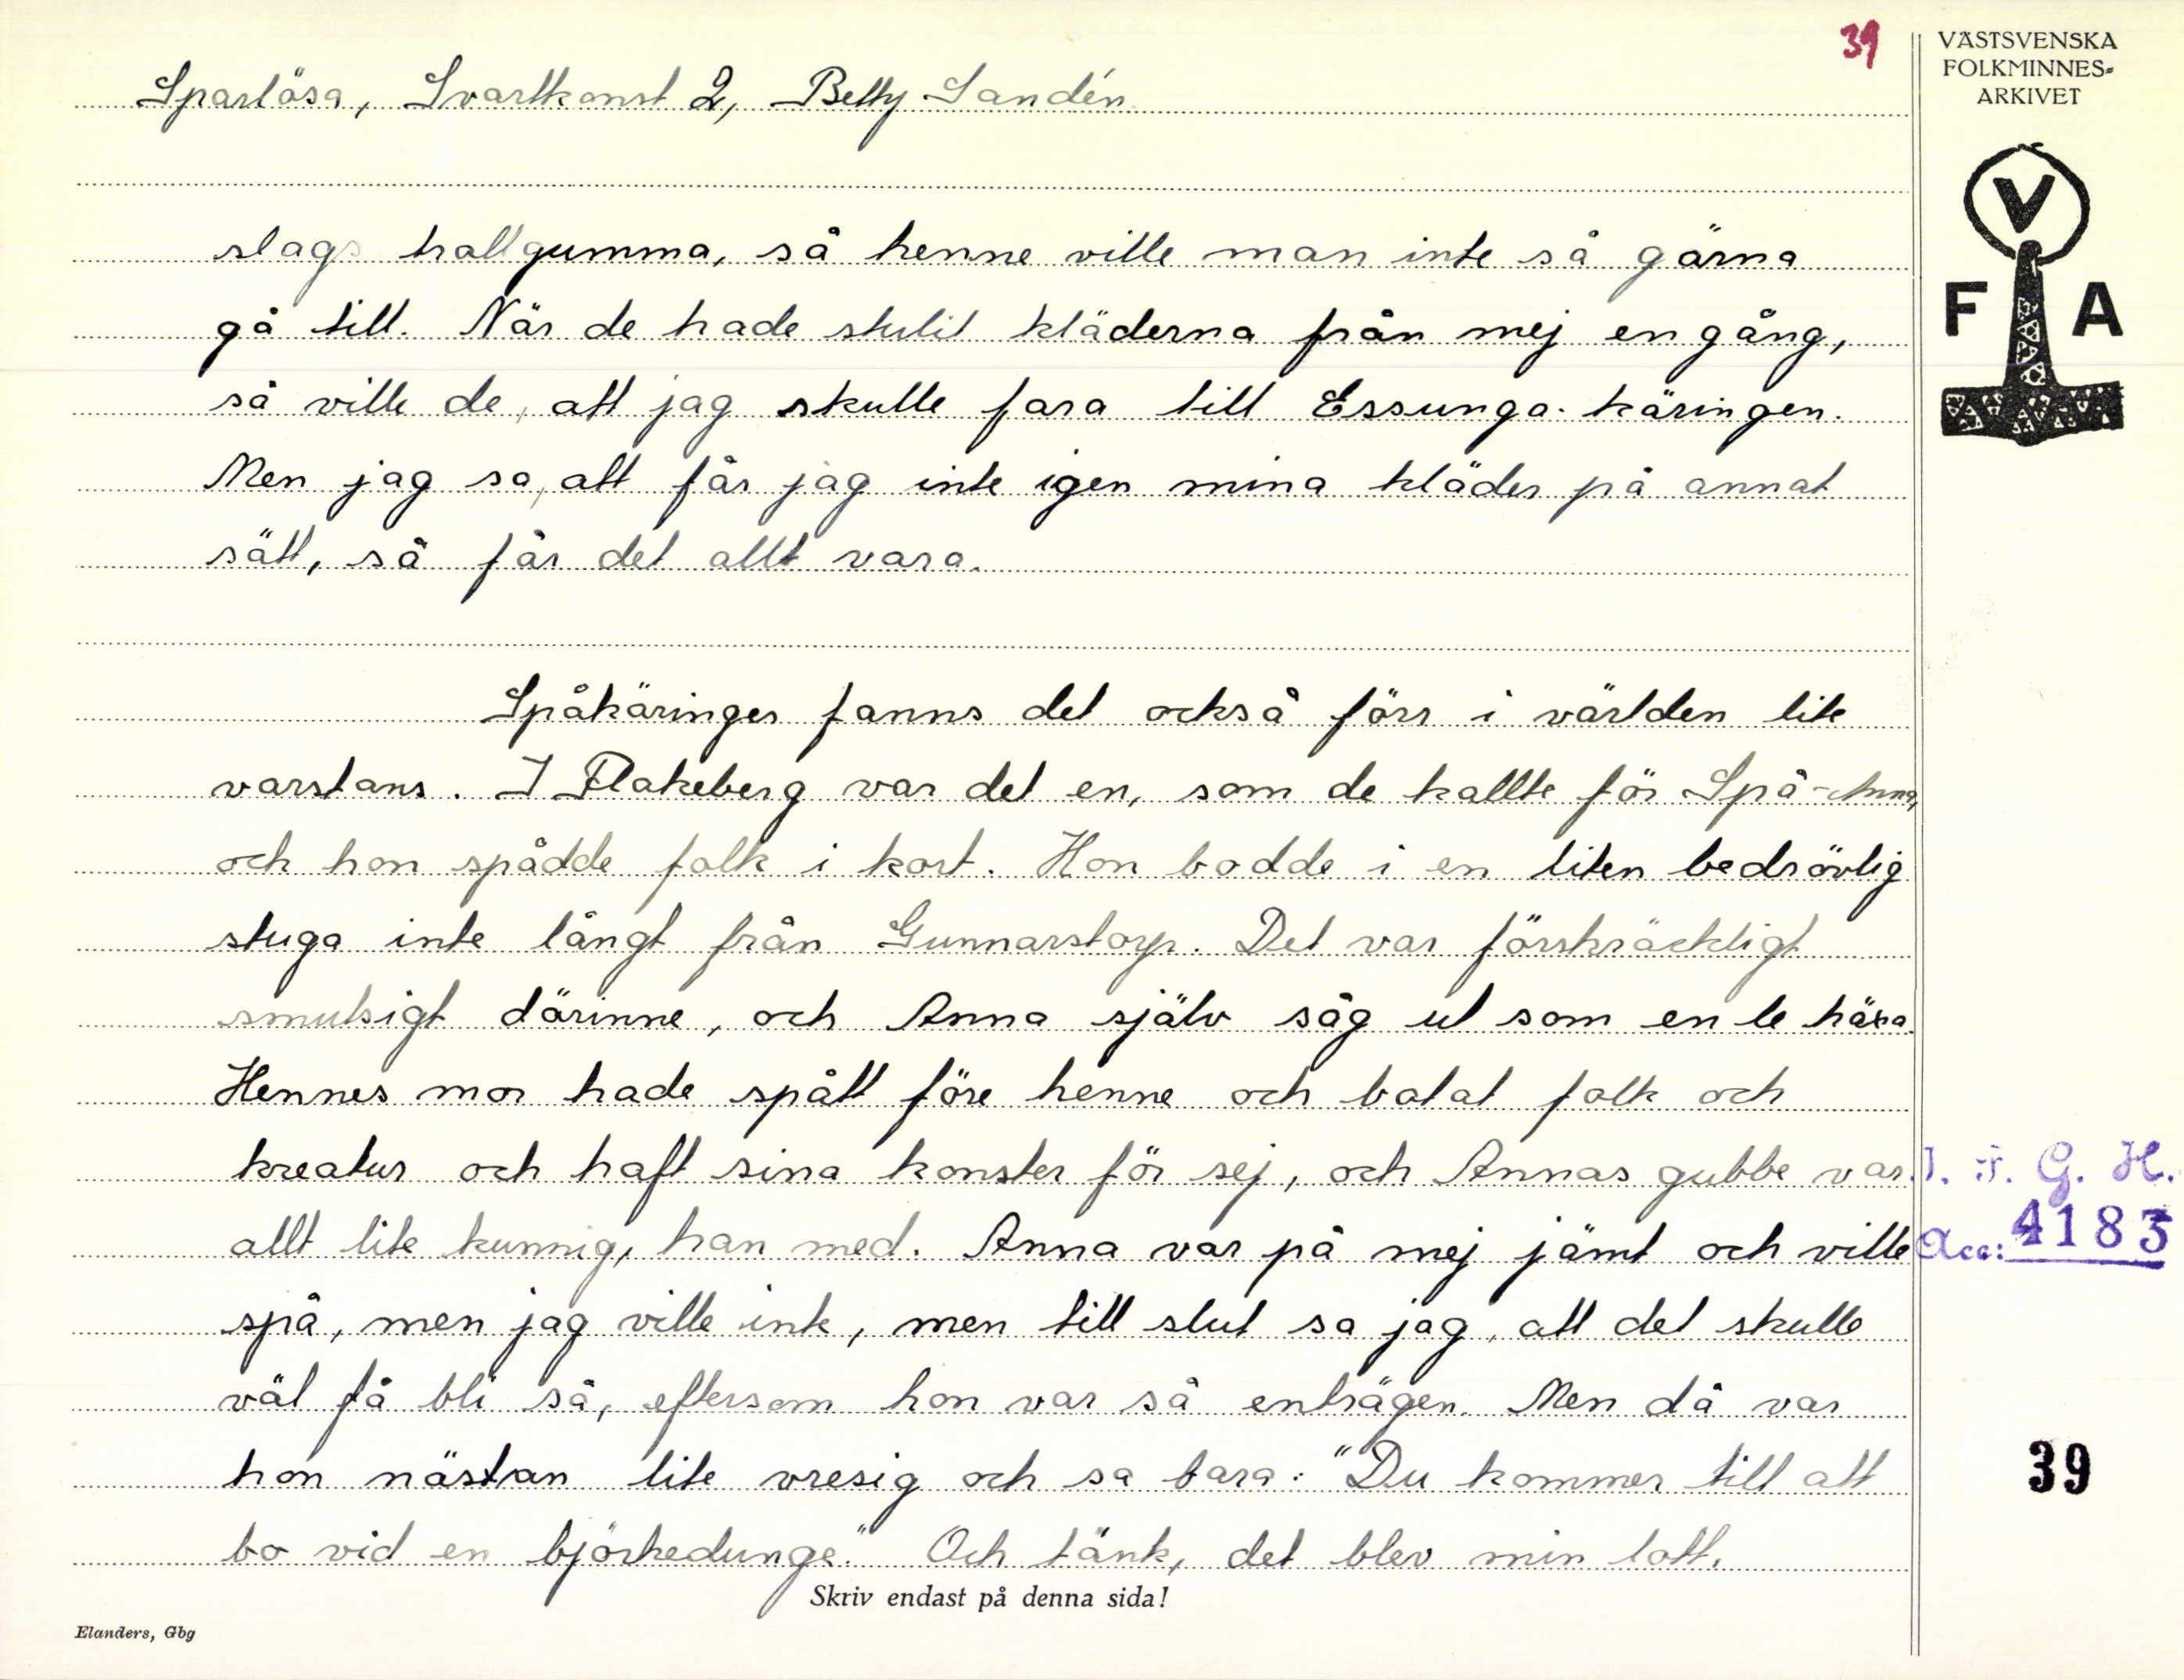 39
VÄSTSVENSKA
FOLKMINNES=
ARKIVET
V
F A
Sparlösa, Svartkonst 2, Betty Sandén.
slags trollgumma, så henne ville man inte så gärna
gå till. När de hade stulit kläderna från mej en gång,
så ville de, att jag skulle fara till Essunga-käringen.
Men jag sa, att får jag inte igen mina kläder på annat
sätt, så får det allt vara.
Spåkäringer fanns det också förr i världen lite
varstans. I Flakeberg var det en, som de kallte för Spå-Anna,
och hon spådde folk i kort. Hon bodde i en liten bedrövlig
stuga inte långt från Gunnarstorp. Det var förskräckligt
smutsigt därinne, och Anna själv såg ut som en le häxa.
Hennes mor hade spått före henne och botat folk och
kreatur och haft sina konster för sej, och Annas gubbe var
allt lite kunnig, han med. Anna var på mej jämt och ville
spå, men jag ville inte, men till slut sa jag, att det skulle
väl få bli så, eftersom hon var så enträgen. Men då var
hon nästan lite vresig och sa bara: "Du kommer till att
bo vid en björkedunge." Och tänk, det blev min lott.
I. F. G. H.
Acc: 4183
39
Skriv endast på denna sida!
Elanders, Gbg